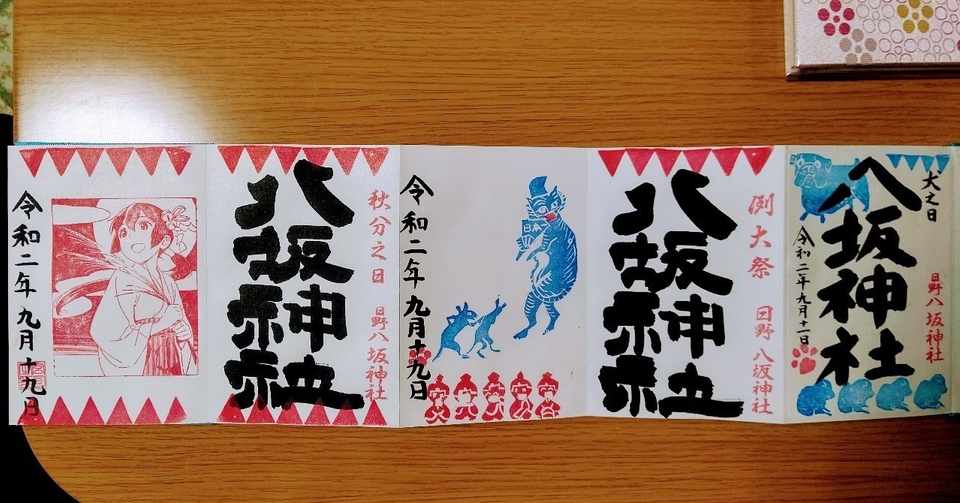 犬之日
日野八坂神社
八坂神社
令和二年九月十一日
例大祭
日野八坂神社
八坂神社
令和二年九月十九日
秋分之日
日野八坂神社
八坂神社
令和二年九月十九日